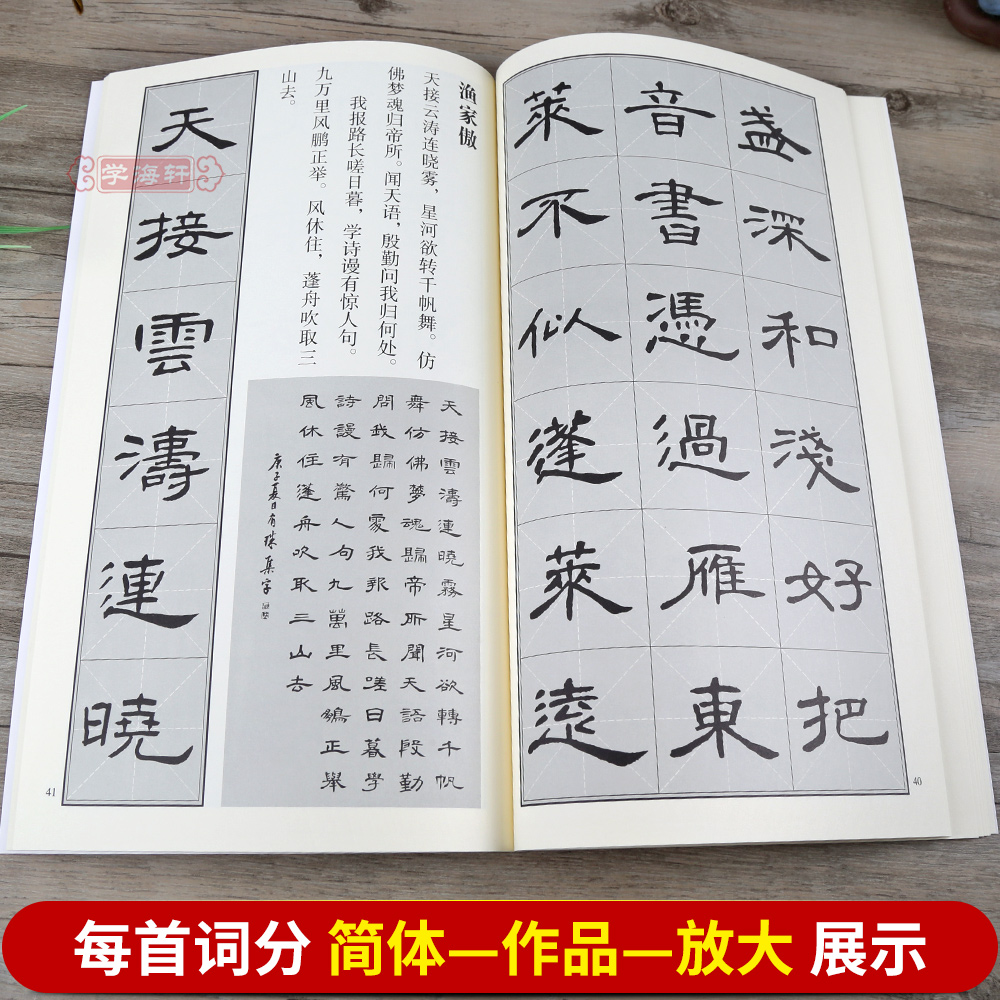 盞深和淺好把
音書憑過雁東
萊不似蓬萊遠
40
渔家傲
天接云涛连晓雾，星河欲转千帆舞。仿
佛梦魂归帝所。闻天语，殷勤问我归何处。
我报路长嗟日暮，学诗谩有惊人句。
九万里风鹏正举。风休住，蓬舟吹取三
山去。
天接雲濤連曉霧星河欲轉千帆
舞仿佛夢魂歸帝所聞天語殷勤
問我歸何處我報路長嗟日暮學
詩謾有驚人句九萬里風鵬正舉
風休住蓬舟吹取三山去
庚子夏日有珠集字
天接雲濤連曉
41
学海轩
每首词分 简体—作品—放大 展示